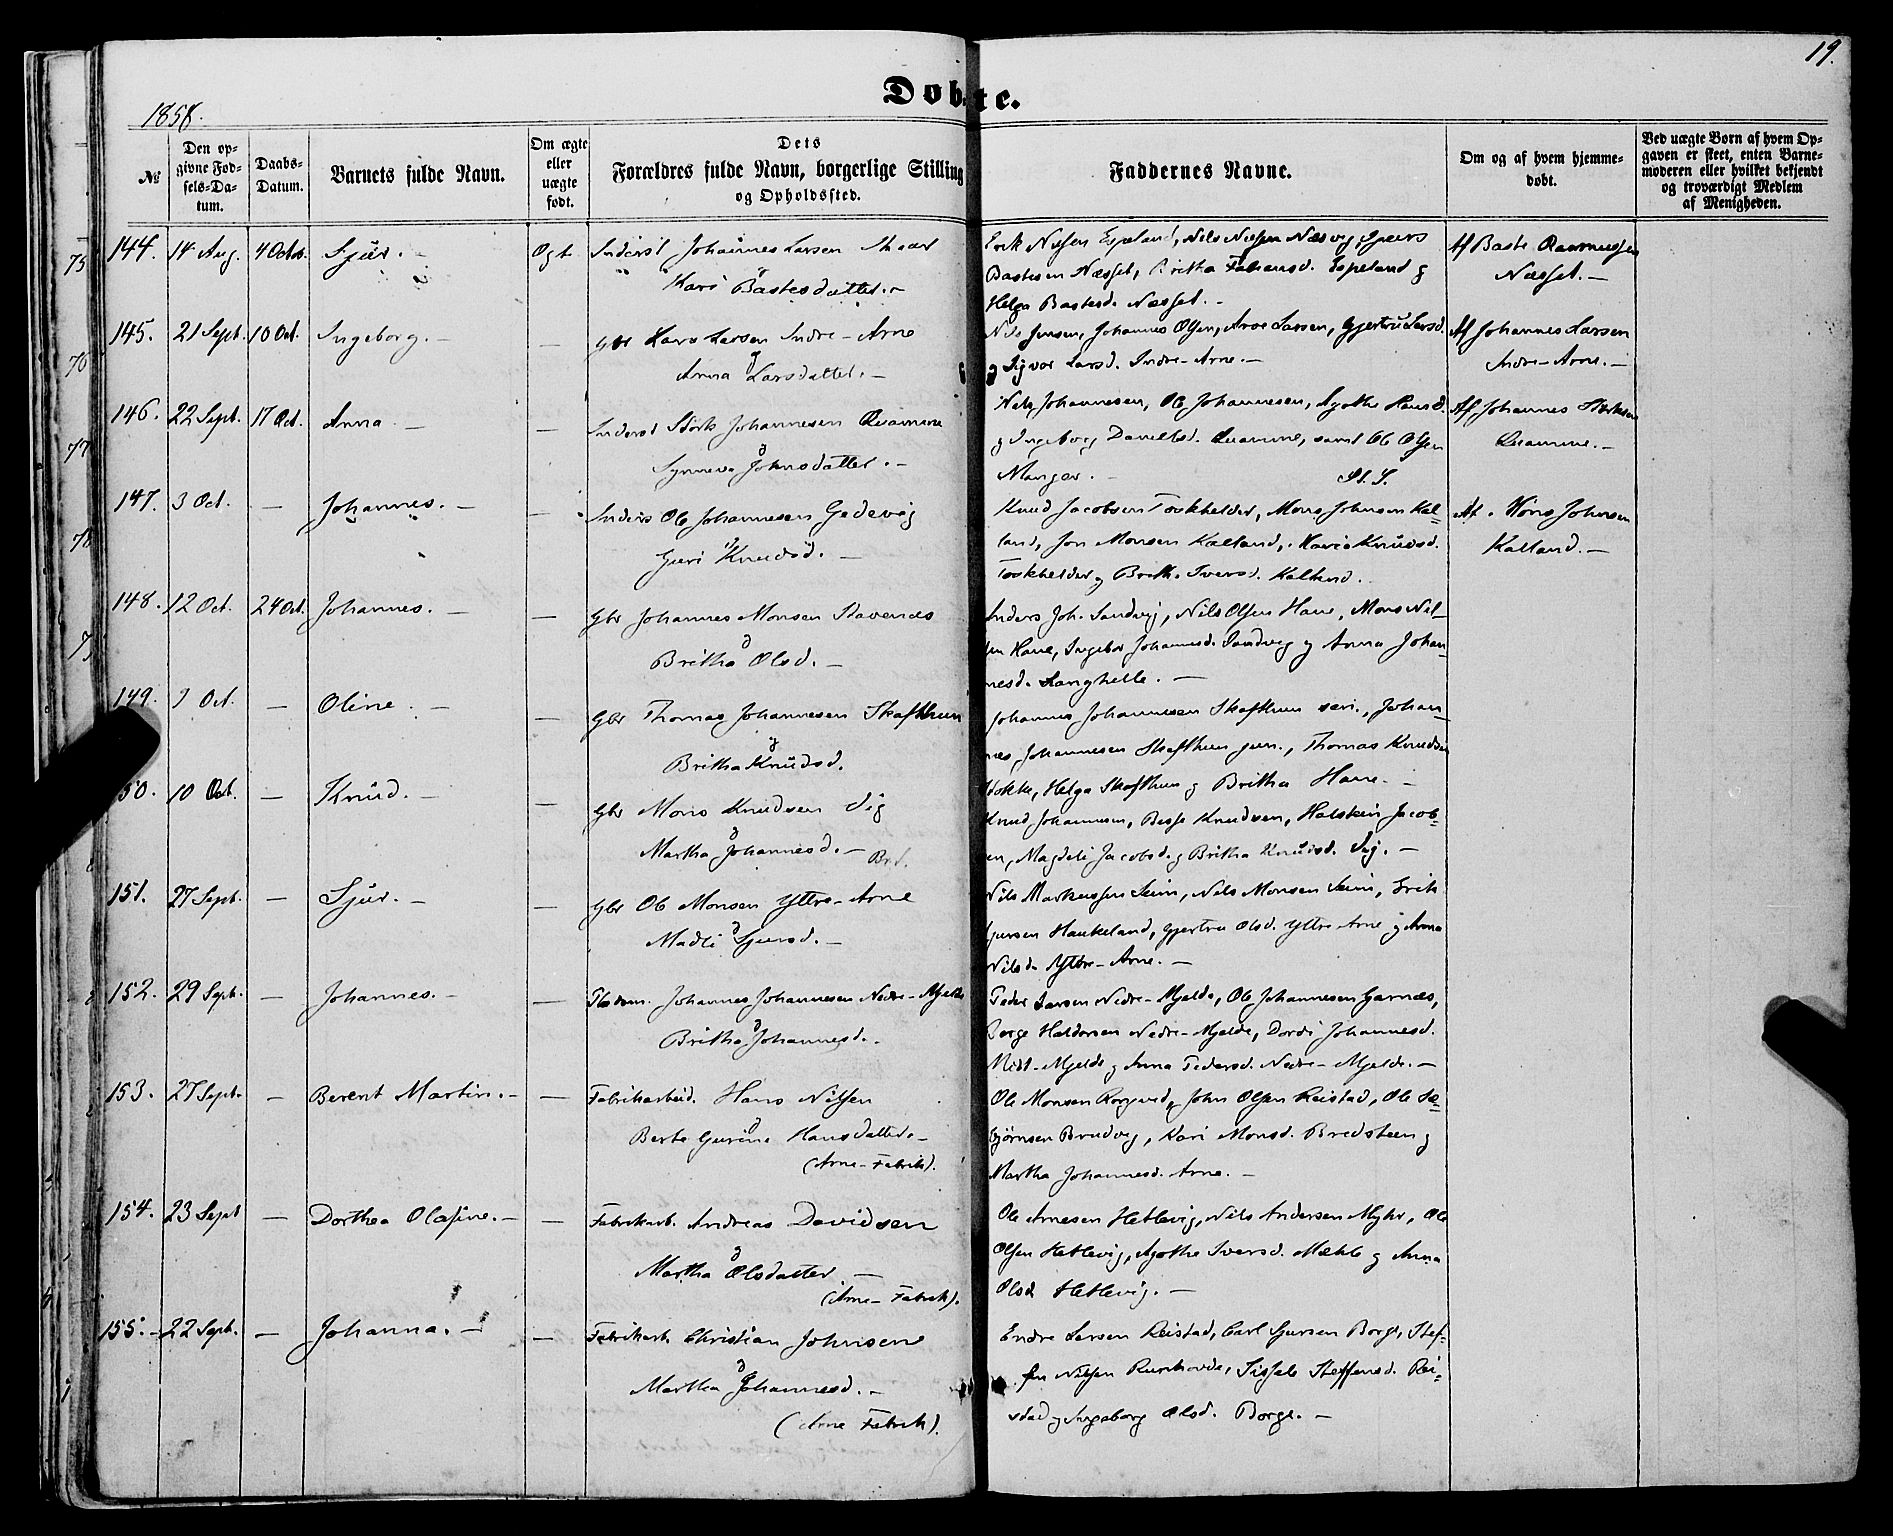 19.
Døbte.
1858.
№
Den op-
givne Fød-
sels-Da-
tum.
Daabs-
Datum.
Barnets fulde Navn.
Om ægte
eller
uægte
født.
Dets
Forældres fulde Navn, borgerlige Stilling
og Opholdssted.
Faddernes Navne.
Om og af hvem hjemme-
døbt.
Ved uægte Børn af hvem Op-
gaven er skeet, enten Barne-
moderen eller hvilket bekjendt
og troværdigt Medlem
af Menigheden.
144. 14 Aug. 4 Octbr. Sjur. - Ægt. Inderst Johannes Larsen
Kari Bastesdatter. -
Erik Nilsen Espeland, Nils Nilsen Næsvig, Sjurs
Bastesen Næsset, Britha Espeland og
Helga Bastesd. Næsset. -
Af Baste Rasmussen
Næsset. -
145. 21 Sept. 10 Oct. Ingeborg. - — Gbr Lars Larsen Indre-Arne
& Anna Larsdatter. -
Nils Jensen, Johannes Olsen, Arne Larsen, Gjertru Larsd.
og Sigvor Larsd. Indre-Arne. -
Af Johannes Larsen
Indre-Arne. -
146. 22 Sept. 17 Oct. Anna - — Inderst Störk Johannesen Quamme
& Synneva Johnsdatter. -
Nils Johannesen, Ole Johannesen, Agothe Hansd.
og Ingeborg Danielsd. Quamme, samt Ole Olsen
Manger. -
Af Johannes Störksen
Quamme. -
147. 3 Oct. — Johannes. - — Inders Ole Johannesen Gedevig
Guri Knudsd. -
Knud Jacobsen Toskhelder, Mons Johnsen Kal-
land, Jon Monsen Kalland, Maria Knudsd.
Toskhelder og Brithe Iversd. Kalland.
Af Mons Johnsen
Kalland. -
148. 12 Oct. 24 Oct. Johannes. - — Gbr Johannes Monsen Stavenes
& Britha Olsd. -
Anders Joh. Sandvig, Nils Olsen Hane, Mons Nil-
sen Hane, Ingebor Johannesd. Sandvig og Anna Johan-
nesd. Langhelle. -
149. 7 Oct. — Oline. - — Gbr Thomas Johannesen Skafthun
& Britha Knudsd.
Johannes Johannesen Skafthun sen., Johan-
nes Johannesen Skafthun jun., Thomas Knudsen
Helga Skafthun og Britha Hane. -
150. 10 Oct. — Knud. - — Gbr Mons Knudsen
& Martha Johannesd. -
Knud Johannesen, Besse Knudsen, Halstein Jacob-
sen, Magdeli Jacobsd. og Britha Knudsd. -
151. 27 Sept. — Sjur. - — Gbr Ole Monsen Yttre-Arne
& Madli Sjursd. -
Nils Markussen Seim, Nils Monsen Seim, Erik
Sjursen Haukeland, Gjertru Olsd. Yttre Arne og Anna
Nilsd. Yttre-Arne. -
152. 29 Sept. — Johannes. - — Johannes Johannesen Nedre-Mjelde
& Britha Johannesd. -
Peder Larsen Nedre-Mjelde, Ole Johannesen Garnæs,
Børge Haldorsen Nedre-Mjelde, Dordi Johannesd.
Midt-Mjelde og Anna Pedersd. Nedre-Mjelde. -
153. 27 Sept. — Berent Martin. - — Fabrikarbeid. Hans Nilsen
& Berte Gurine Hansdatter. -
(Arne-Fabrik).
Ole Monsen, John Olsen Reistad, Ole Sæ-
bjørnsen Brudvig, Kari Monsd. Bredsteen og
Martha Johannesd. Arne. -
154. 23 Sept — Dorthea Olasine. - — Fabrikarb. Andreas Davidsen
& Martha Olsdatter. -
(Arne-Fabrik).
Ole Arnesen Hetlevig, Nils Andersen Myhr, Ole
Olsen Hetlevig, Agothe Iversd. Mæhle og Anna
Olsd Hetlevig. -
155. - 22 Sept. — Johanna. - — Fabrikarb. Christian Johnsen
& Martha Johannesd. -
(Arne Fabrik).
Endre Larsen Reistad, Carl Sjursen Borge, Stef-
fen Nilsen Runhovde, Sissele Steffensd. Rei-
stad og Ingeborg Olsd. Borge. -